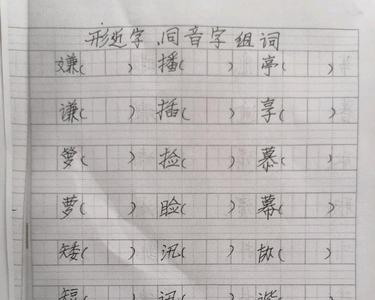 形近字、同音字组词
嫌( ) 播( ) 亭( )
谦( ) 插( ) 享( )
箩( ) 捡( ) 慕( )
萝( ) 睑( ) 幕( )
矮( ) 汛( ) 协( )
短( 讯( 谐(